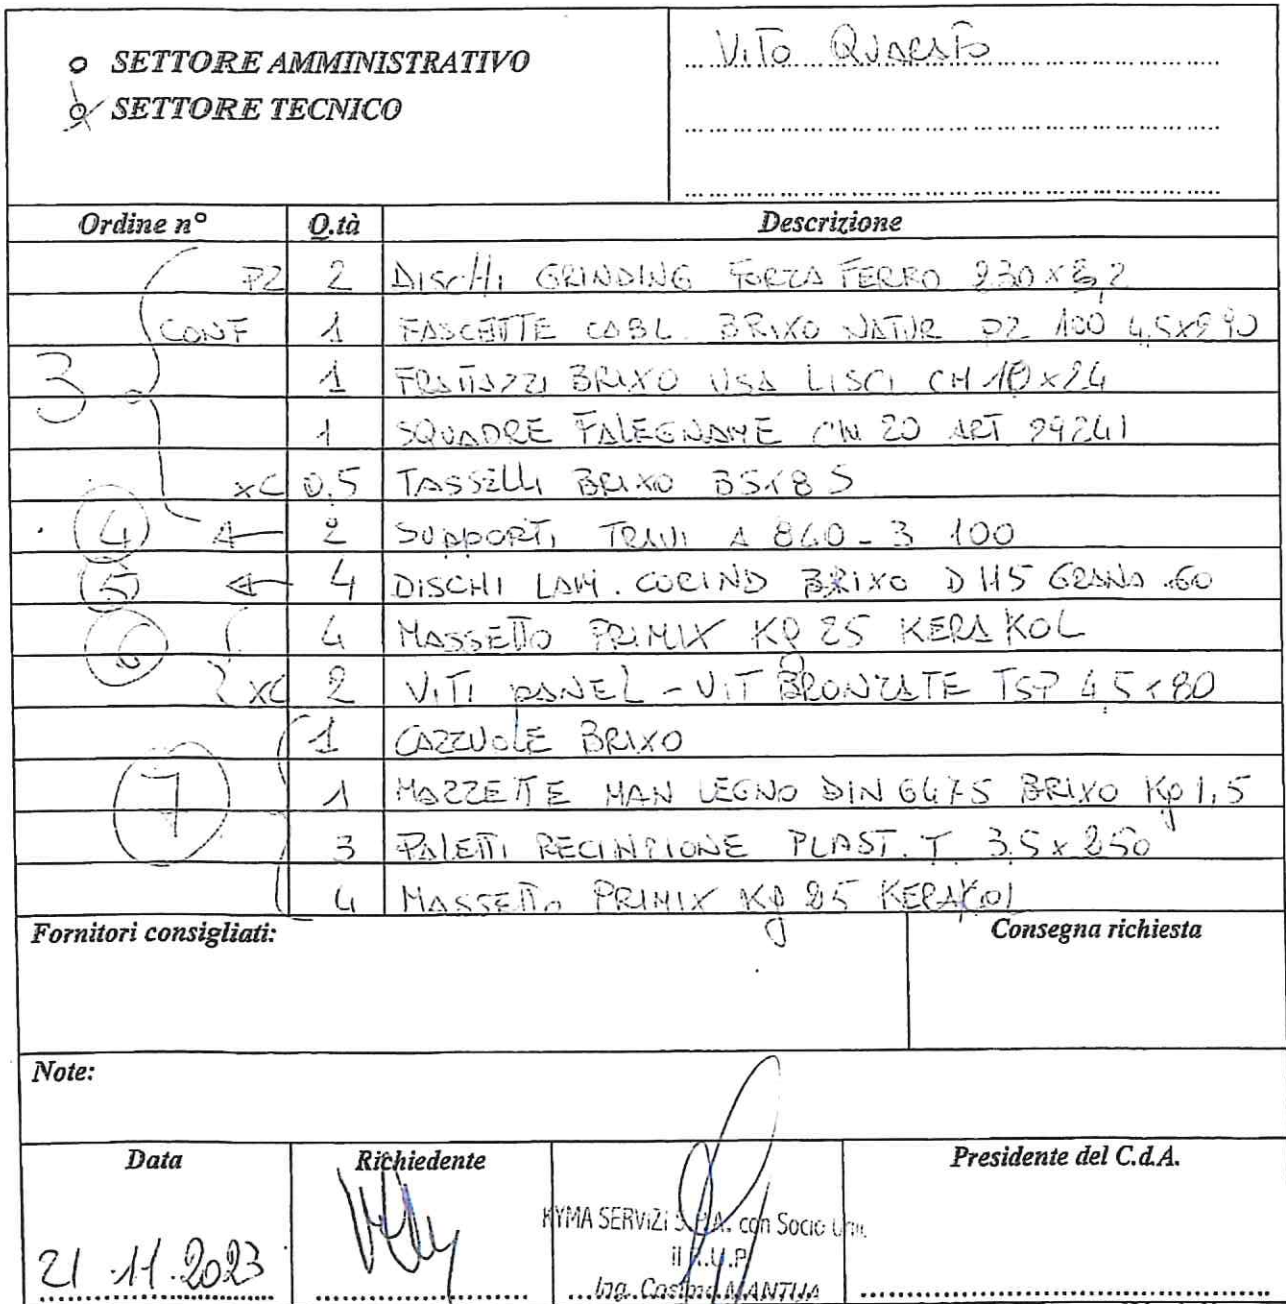 SETTORE AMMINISTRATIVO
SETTORE TECNICO
VITO QUARATO
Ordine n° Q.tà Descrizione
PZ 2 DISCHI GRINDING FORZA FERRO 230 x 3,2
CONF 1 FASCETTE CABL. BRIXO NATUR PZ 100 4,5x290
3 1 FRATTAZZI BRIXO USA LISCI CM 10x24
1 SQUADRE FALEGNAME CM 20 ART 29241
xC 0.5 TASSELLI BRIXO BS x 8 S
4 2 SUPPORTI TRAVI A 840 - 3 100
5 4 DISCHI LAM. CORIND BRIXO D 115 GRANA 60
6 4 MASSETTO PRIMIX Kg 25 KERAKOL
xC 2 VITI PANEL - VIT BRONZATE TSP 4,5 x 80
1 CAZZUOLE BRIXO
7 1 MAZZETTE MAN LEGNO DIN 6475 BRIXO Kg 1,5
3 PALETTI RECINZIONE PLAST. T 3.5 x 250
4 MASSETTO PRIMIX Kg 25 KERAKOL
Fornitori consigliati: Consegna richiesta
Note:
Data Richiedente Presidente del C.d.A.
KYMA SERVIZI S.P.A. con Socio Unic.
il R.U.P.
21.11.2023 Ing. Cosimo MANTUA